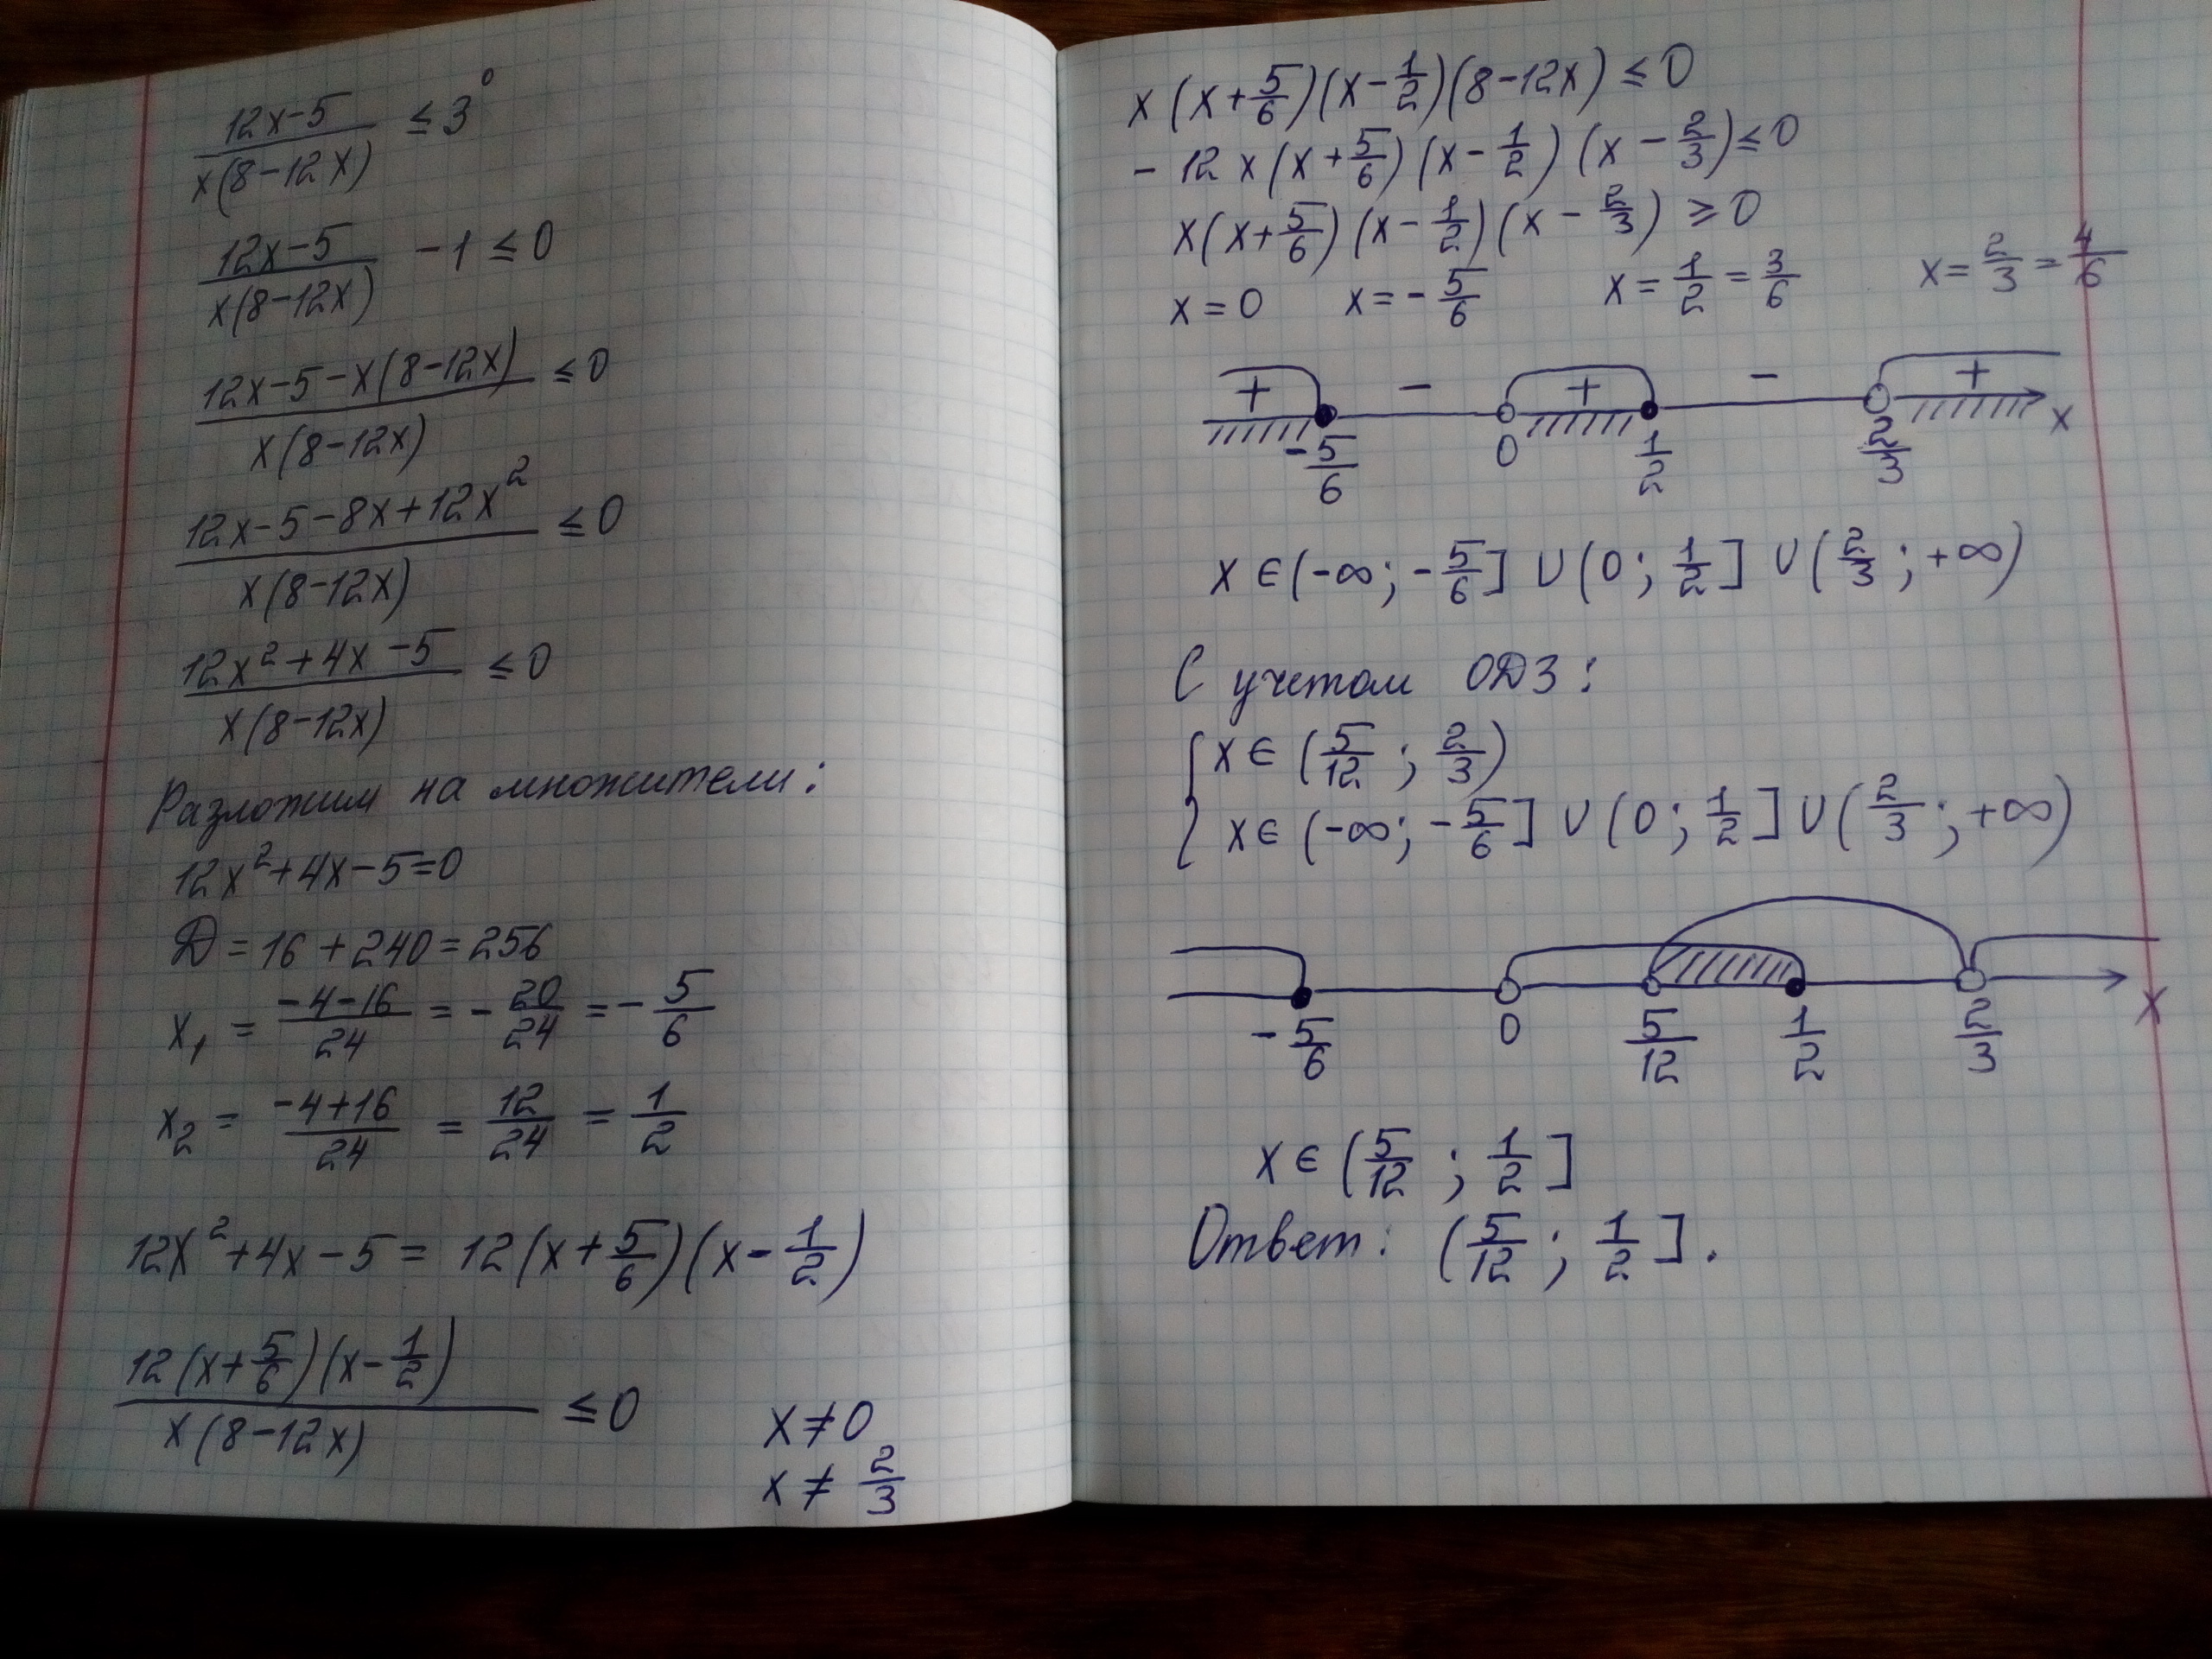 (12x-5)/(x(8-12x)) ≤ 3⁰
(12x-5)/(x(8-12x)) - 1 ≤ 0
(12x-5-x(8-12x))/(x(8-12x)) ≤ 0
(12x-5-8x+12x²)/(x(8-12x)) ≤ 0
(12x²+4x-5)/(x(8-12x)) ≤ 0
Разложим на множители:
12x²+4x-5=0
Д = 16+240=256
x₁ = (-4-16)/24 = -20/24 = -5/6
x₂ = (-4+16)/24 = 12/24 = 1/2
12x²+4x-5 = 12(x+5/6)(x-1/2)
(12(x+5/6)(x-1/2))/(x(8-12x)) ≤ 0
x≠0
x≠2/3
x(x+5/6)(x-1/2)(8-12x) ≤ 0
-12x(x+5/6)(x-1/2)(x-2/3) ≤ 0
x(x+5/6)(x-1/2)(x-2/3) ≥ 0
x=0 x=-5/6 x=1/2=3/6 x=2/3=4/6
+ - + - +
-5/6 0 1/2 2/3 x
x∈(-∞; -5/6] ∪ (0; 1/2] ∪ (2/3; +∞)
С учетом ОДЗ:
{ x∈(5/12; 2/3)
x∈(-∞; -5/6] ∪ (0; 1/2] ∪ (2/3; +∞)
-5/6 0 5/12 1/2 2/3 x
x∈(5/12; 1/2]
Ответ: (5/12; 1/2].